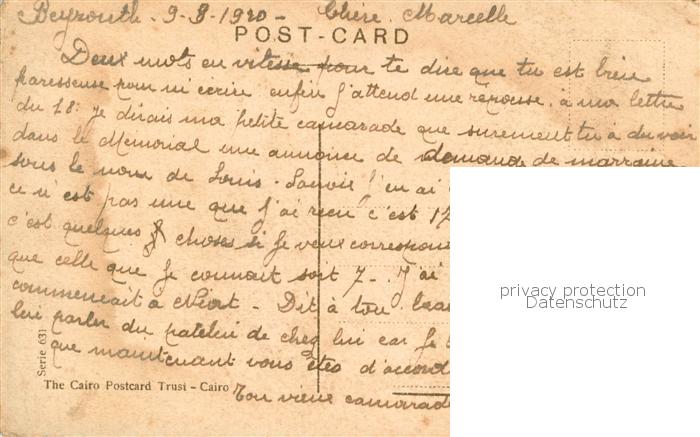 Beyrouth - 9-8-1920 - Chère Marcelle
POST-CARD
Deux mots en vitesse pour te dire que tu est bien
paresseuse pour m'écrire enfin j'attend une reponse à ma lettre
du 18: je dirais ma petite camarade que surement tu a du voir
dans le Memorial une annonce de demande de marraine
sous le nom de Louis. j'en ai
ce n'est pas une que j'ai reçu c'est 17
c'est quelques choses si je veux correspon
que celle que je connait soit 7 - J'ai
commencait à Niort - Dit à ton beau
lui parler du patelin de chez lui car je
que maintenant vous êtes d'accord
Ton vieux camarade
Serie 631
The Cairo Postcard Trust - Cairo
privacy protection
Datenschutz